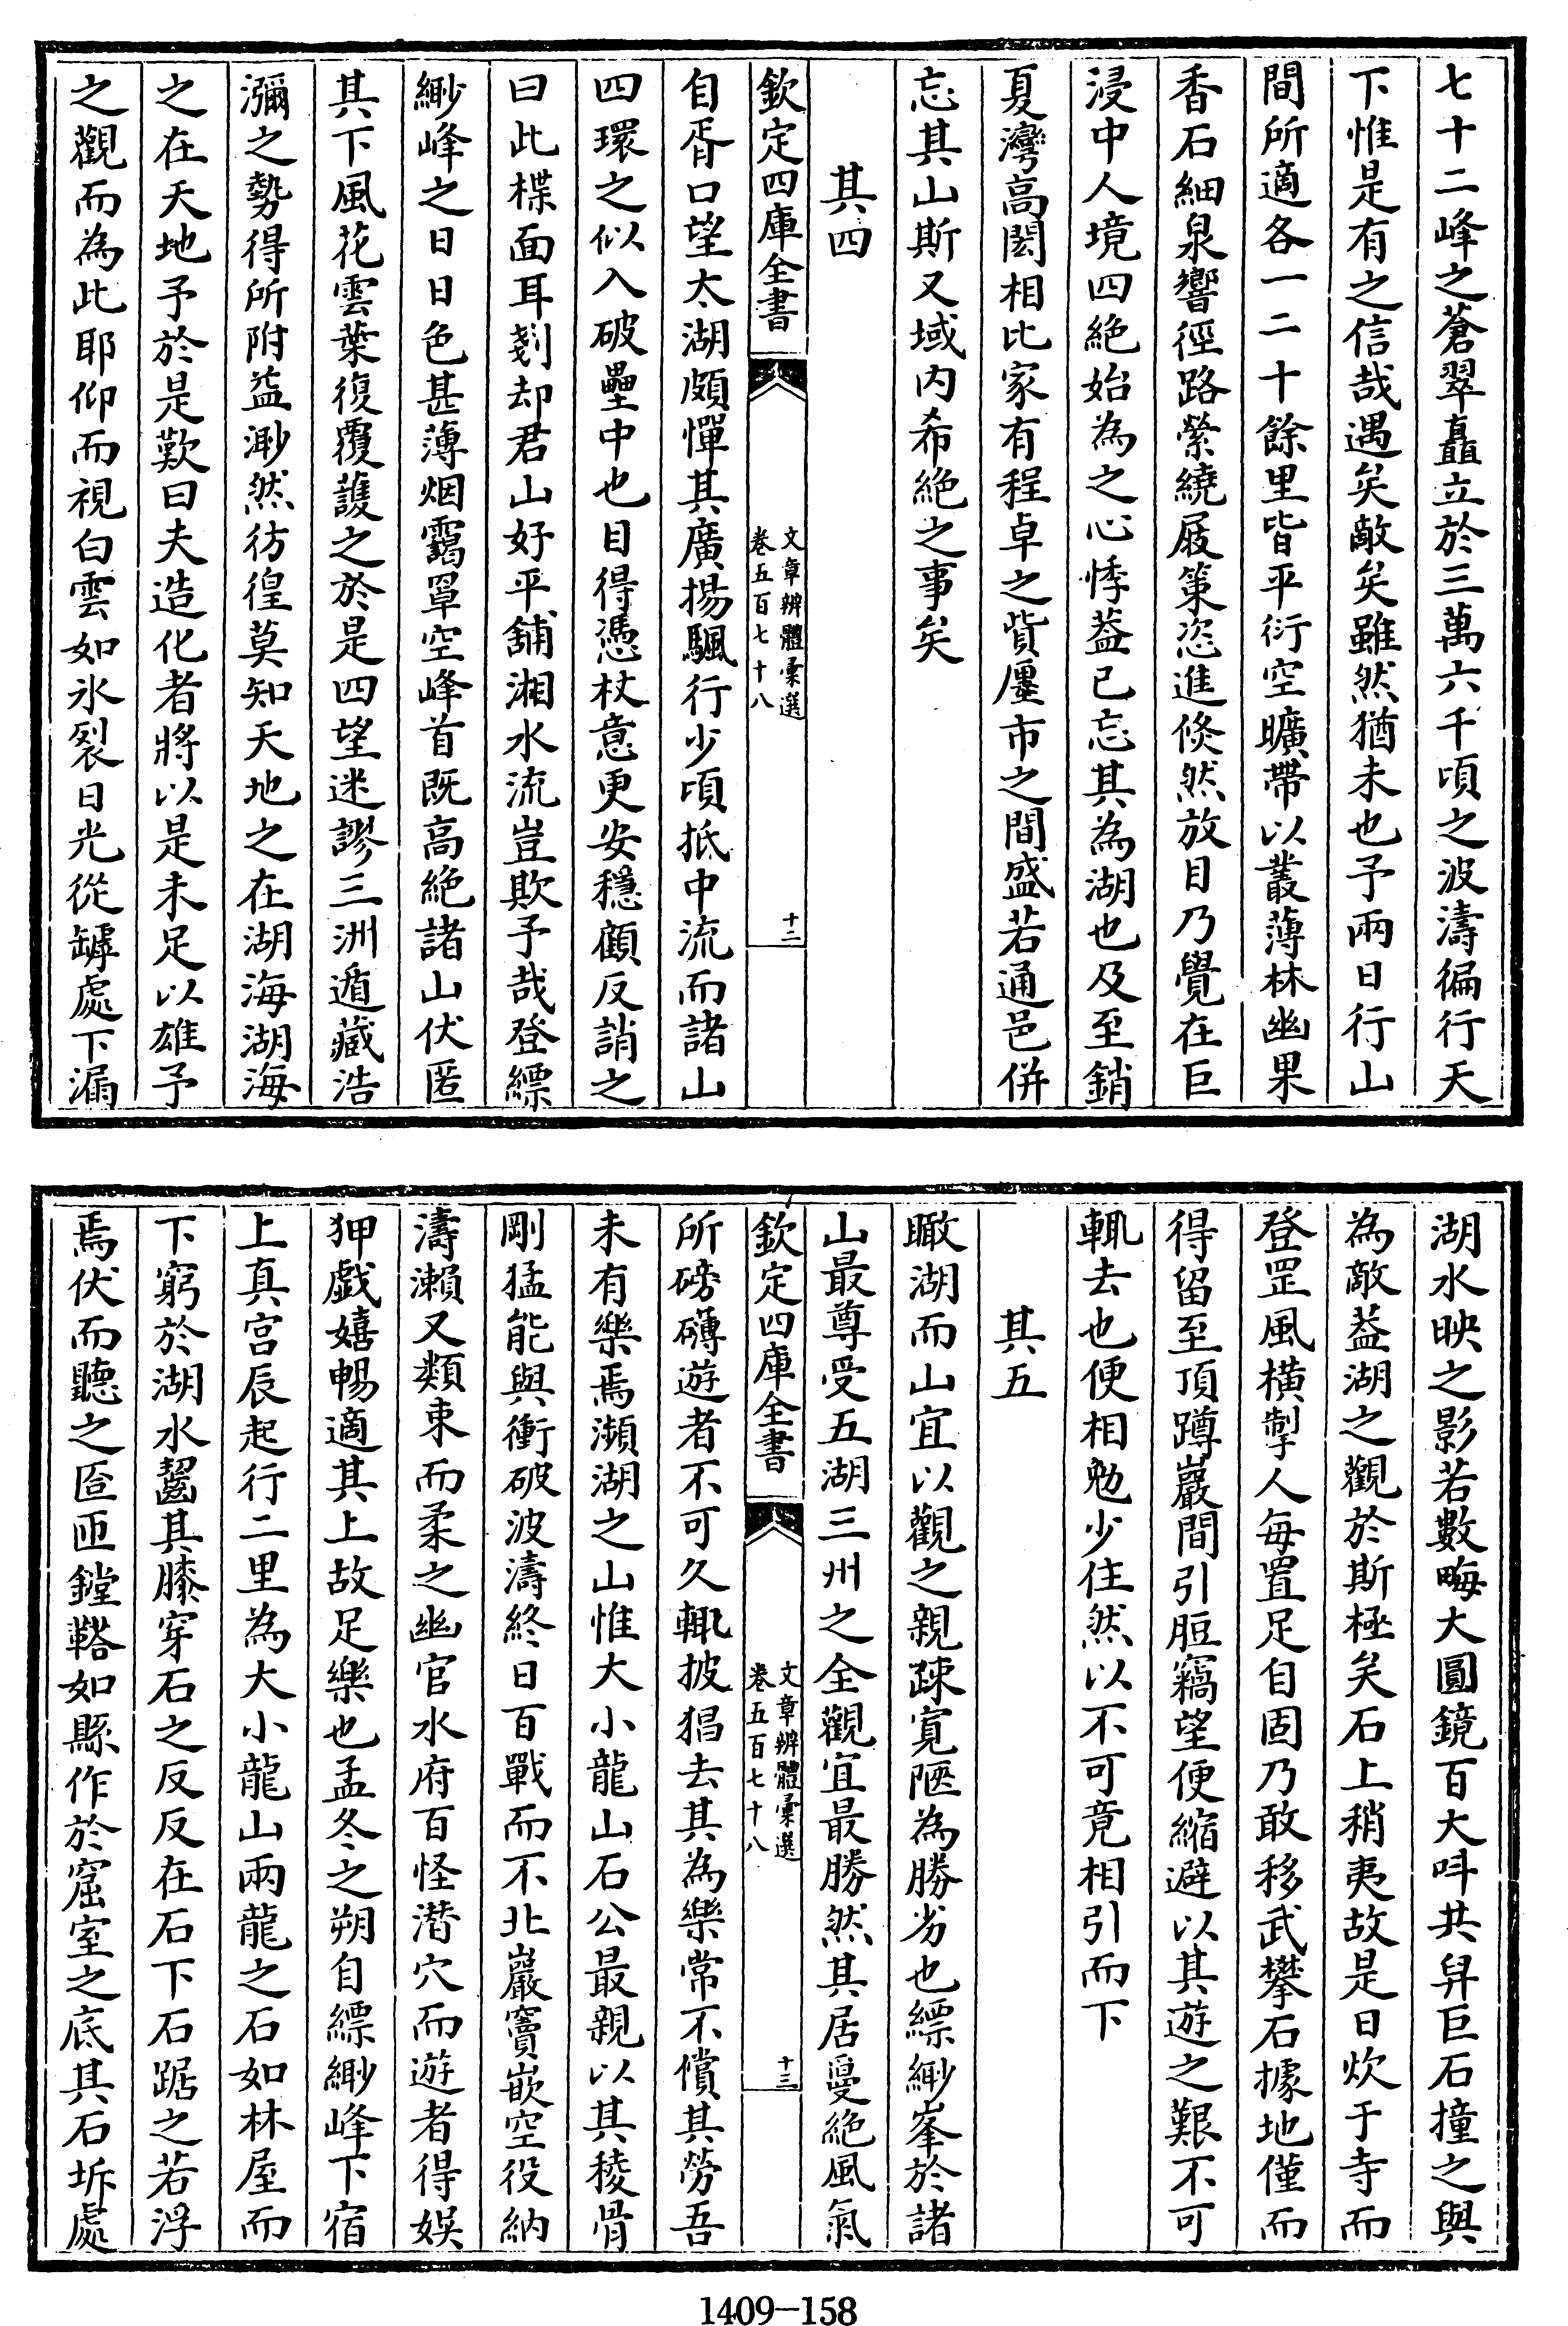 七十二峰之蒼翠矗立於三萬六千頃之波濤徧行天
下惟是有之信哉遇矣敵矣雖然猶未也予兩日行山
間所適各一二十餘里皆平衍空曠帶以叢薄林幽果
香石細泉響徑路縈繞屐策恣進倐然放目乃覺在巨
浸中人境四絶始為之心悸葢已忘其為湖也及至銷
夏灣高閎相比家有程卓之貲廛市之間盛若通邑併
忘其山斯又域内希絶之事矣
其四
欽定四庫全書
文章辨體彙選
卷五百七十八
十二
自胥口望太湖頗憚其廣揚颿行少頃抵中流而諸山
四環之似入破壘中也目得憑杖意更安穩顧反誚之
曰此楪面耳剗却君山好平鋪湘水流豈欺予哉登縹
緲峰之日日色甚薄烟靄罩空峰首既高絶諸山伏匿
其下風花雲葉復覆䕶之於是四望迷謬三洲遁藏浩
瀰之勢得所附益渺然彷徨莫知天地之在湖海湖海
之在天地予於是歎曰夫造化者將以是未足以雄予
之觀而為此耶仰而視白雲如氷裂日光從罅處下漏
湖水映之影若數畮大圓鏡百大呌共舁巨石撞之與
為敵葢湖之觀於斯極矣石上稍夷故是日炊于寺而
登罡風横掣人每置足自固乃敢移武攀石據地僅而
得留至頂蹲巖間引脰竊望便縮避以其遊之艱不可
輒去也便相勉少住然以不可竟相引而下
其五
瞰湖而山宜以觀之親疎寛陿為勝劣也縹緲峯於諸
山最尊受五湖三州之全觀宜最勝然其居敻絶風氣
欽定四庫全書
文章辨體彙選
卷五百七十八
十三
所磅礴遊者不可久輒披猖去其為樂常不償其勞吾
未有樂焉瀕湖之山惟大小龍山石公最親以其稜骨
剛猛能與衝破波濤終日百戰而不北巖竇嵌空役納
濤瀨又類束而柔之幽官水府百怪潜穴而遊者得娱
狎戯嬉暢適其上故足樂也孟冬之朔自縹緲峰下宿
上真宫辰起行二里為大小龍山兩龍之石如林屋而
下窮於湖水齧其膝穿石之反反在石下石踞之若浮
焉伏而聽之匼匝鏜鞳如縣作於窟室之底其石坼處
1409-158